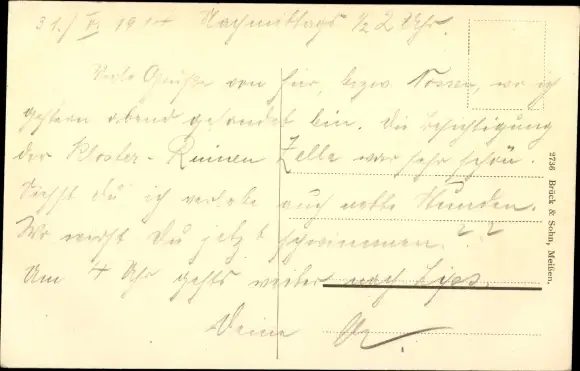 Nachmittags ½ 2 Uhr.
Viele Grüße von hier, bezw. Nossen, wo ich
gestern abend gelandet bin. Die Besichtigung
der Kloster-Ruinen Zelle war sehr schön.
Siehst du ich verlebe auch nette Stunden.
Wo wirst Du jetzt schwimmen. ??
Um 4 Uhr gehts weiter nach
Deine
2736 Brück & Sohn, Meißen.